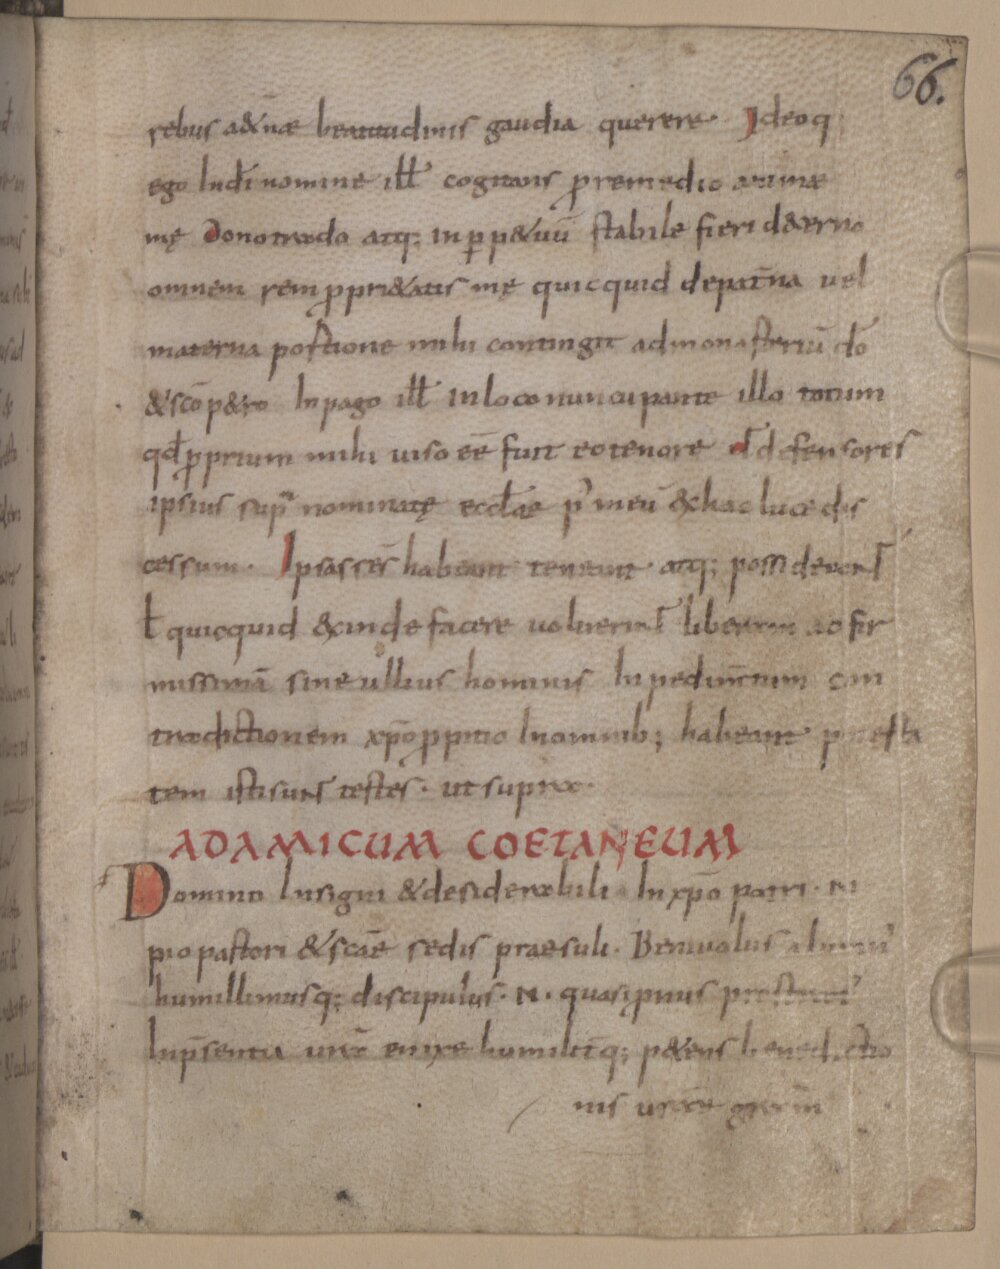 66.
rebus ad&ernæ beatitudinis gaudia querere. Ideoq
ego In dī nomine ill̄ cogitans p remedio animæ
mę Dono trado atq; in pp&uū stabile fieri decerno
omnem rem ppri&atis mę quicquid de pat̄na uel
materna portione mihi contingit ad monasteriū do
& sc̄o p&ro In pago ill̄ in loco nuncupante illo totum
qd pprium mihi uiso eē fuit eo tenore ut defensores
ipsius sup nominatę eccl̄ae p meū & hac luce dis
cessum. Ipsas res habeant teneant atq; possideant
ł quicquid exinde facere uoluerint liberam ac fir
missimā sine ullius hominis Inpedim̄tum con
tradictionem xp̄o ppitio In omnib; habeant potesta
tem isti sunt testes. ut supra.
AD AMICUM COETANEUM
Domino Insigni & desiderabili In xp̄o patri. N
pio pastori & sc̄ae sedis praesuli. Beniuolus alumn
humillimusq; discipulus. N. quasi pnus prostrat
In p̄sentia ur̄æ enixe humilit̄q; p&ens benedictio
nis uræ